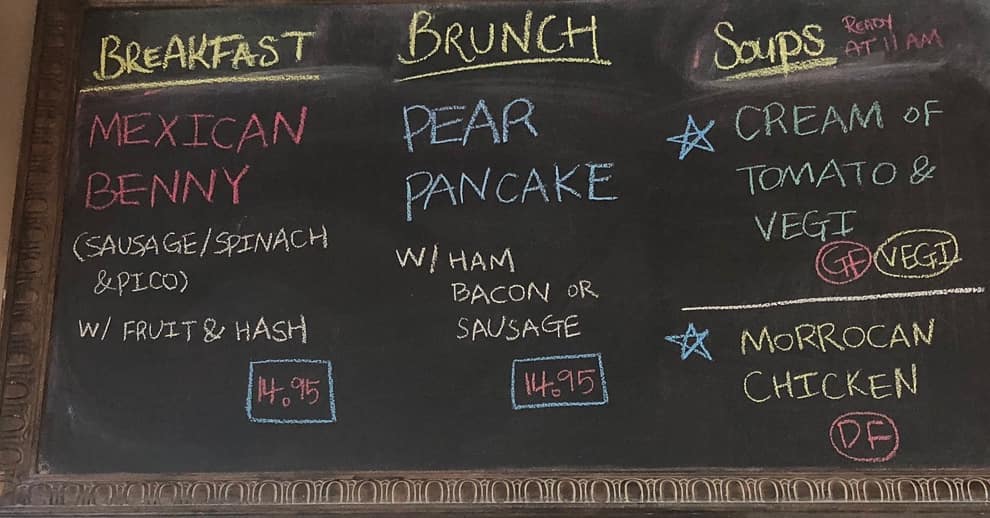 BREAKFAST
MEXICAN
BENNY
(SAUSAGE/SPINACH
&PICO)
W/ FRUIT & HASH
14.95
BRUNCH
PEAR
PANCAKE
W/ HAM
BACON OR
SAUSAGE
14.95
Soups READY
AT 11 AM
CREAM OF
TOMATO &
VEGI
GF VEGI
MORROCAN
CHICKEN
DF